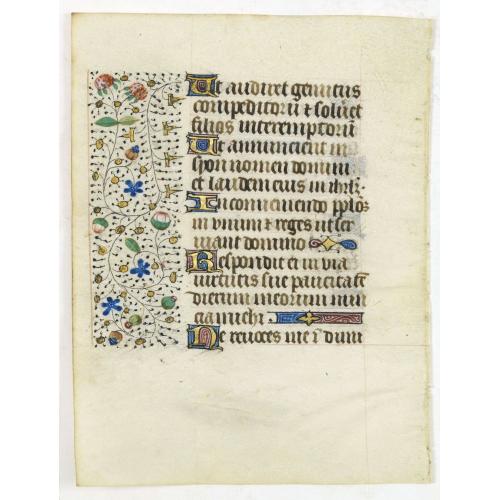 Ut audiret gemitus
compeditorū ⁊ solvet
filios interemptorū
Ut annuncient in sy
spon nomen domini
et laudem eius in ihrlm
In conveniendo pplos
in unum ⁊ reges ut ser
viant domino
Respondit ei in via
virtutis sue paucitatē
dierum meorum nun
cia michi
Ne revoces me ī dimi